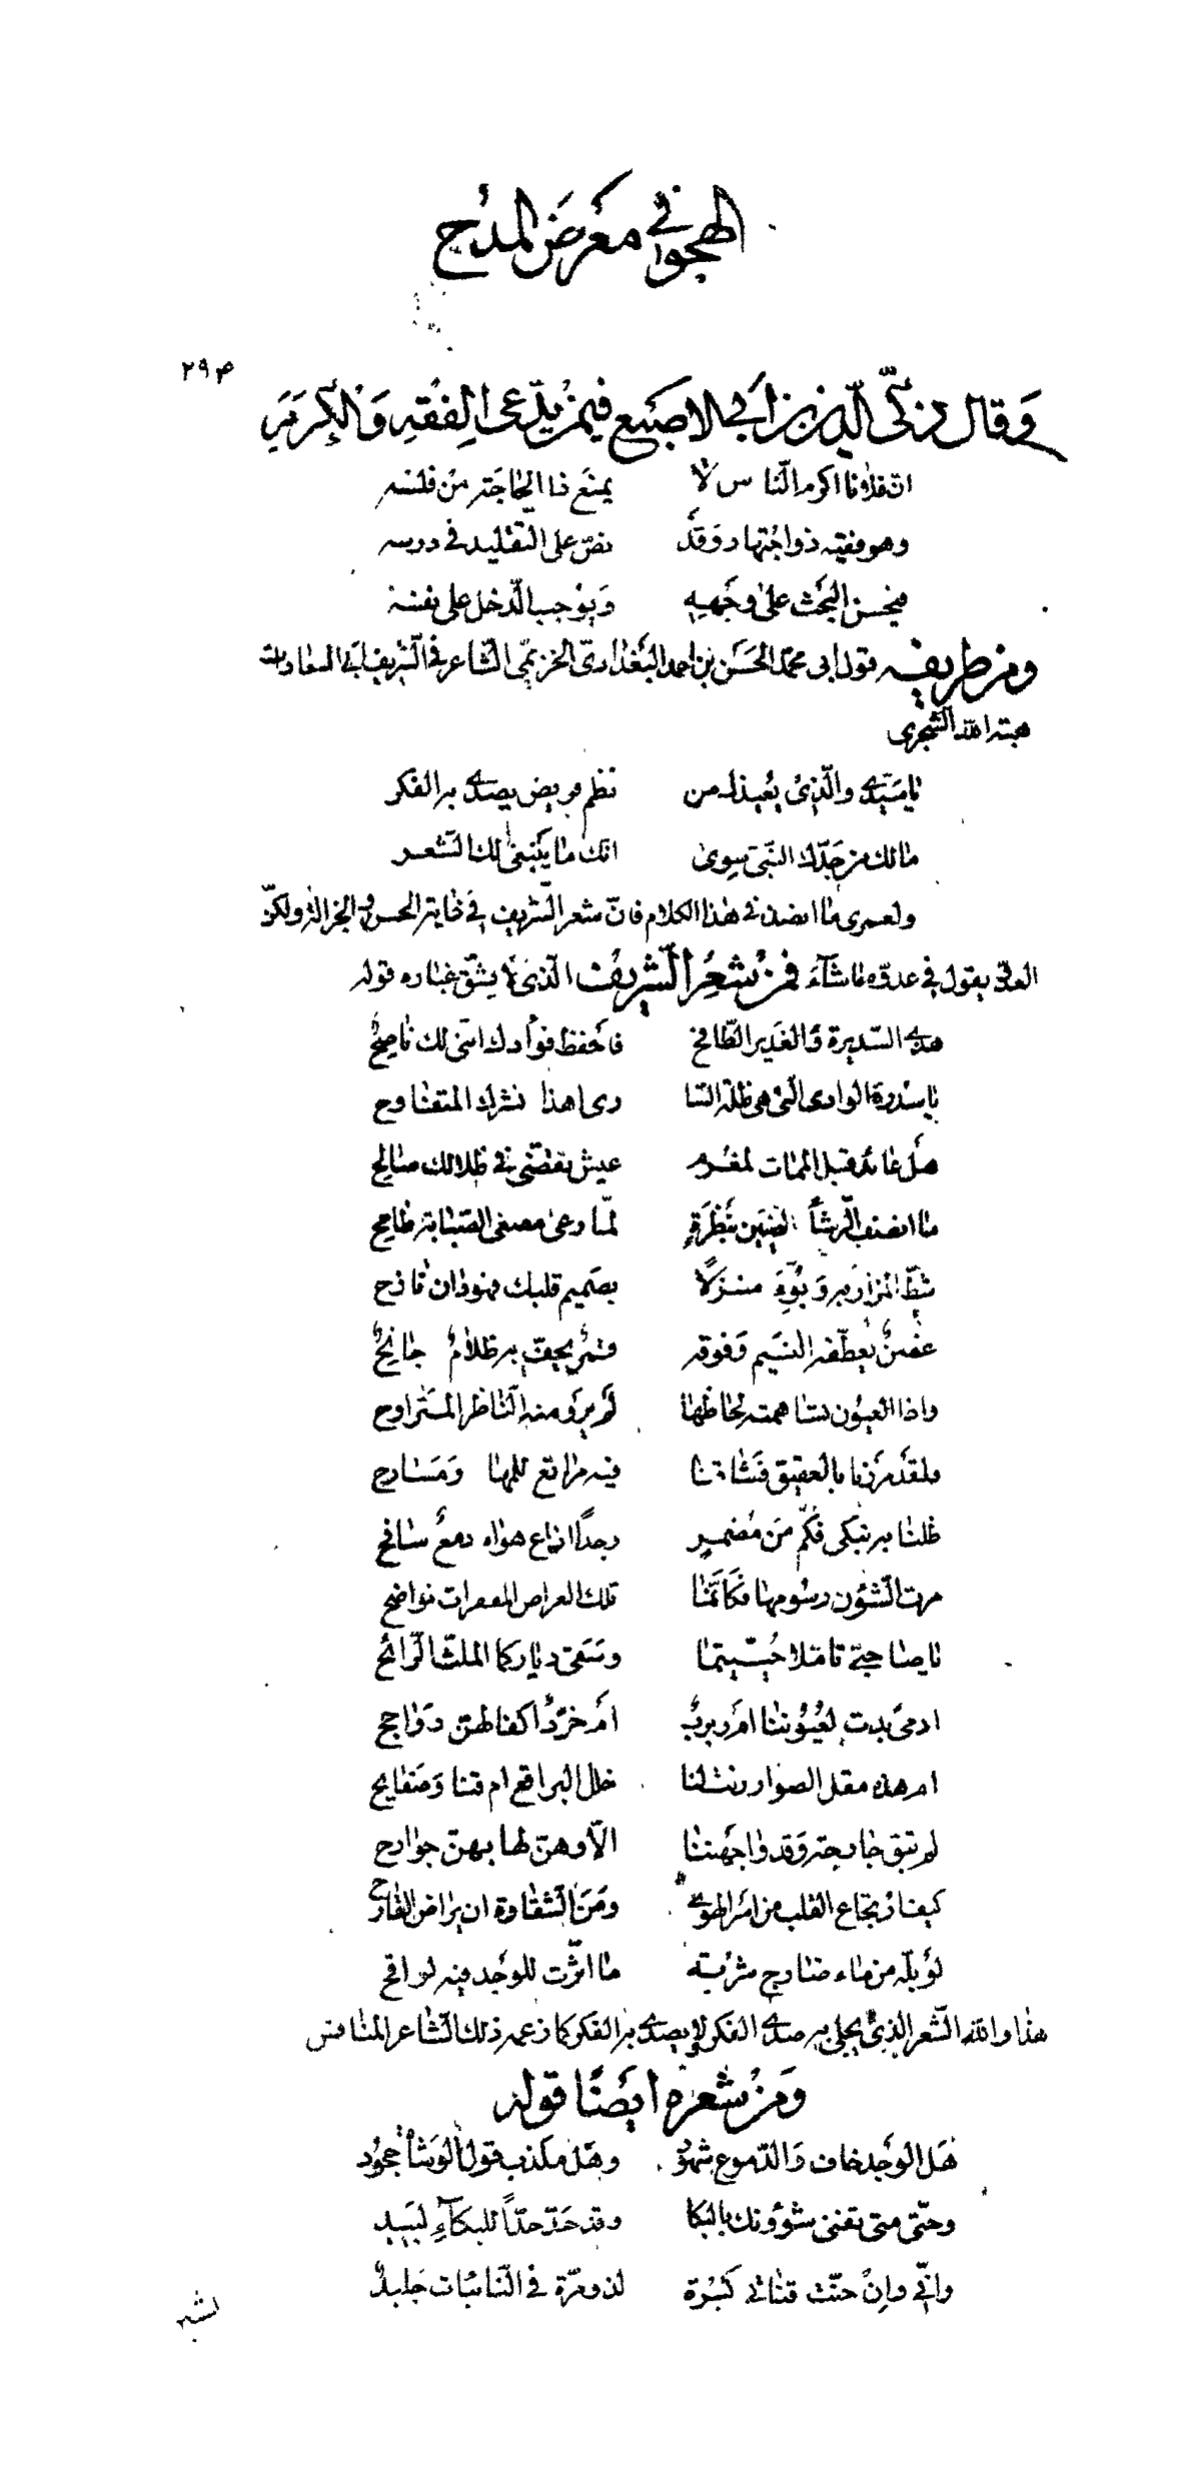 الهجو في معرض المدح
٢٩٣
وَقال زكيّ الدّين بن أبي الاصبع فيمن يدّعى الفقه وَالكرم
انّ فلانا اكرم النّاس لا يمنع ذا الحاجة من فلسه
وهو فقيه ذو اجتهاد وَقد نصّ على التّقليد في درسه
فيحسن البحث على وجهه وَيوجب الدّخل على نفسه
ومن طريفه قول ابى محمّد الحسَن بن احمد البَغدادىّ الشّاعر في الشّريف ابى السعادات
هبة الله الشجرى
يا سيّدى والّذى يُعيذك من نظم قريض يصدى به الفكر
مالك من جدّك النّبىّ سِوى انّك ما يَنبغى لك الشّعر
ولعمرى ما انصف في هذا الكلام فانّ شعر الشّريف في غاية الحسن والجزالة ولكنّ
العدوّ يقول في عدوّه ما شآء فمن شعر الشّريف الّذى لا يشقّ غباره قوله
هذى السّديرة وَالغَدير الطّافح فاحفظ فؤادك انّنى لك ناصحُ
يا سدرة الوادى الّتى هى ظلّة السّا رى اهذا نشرك المتفاوح
هل عائد قبل الممات لمغرم عيش تقضّى في ظلالك صالح
ما انصف الرّشأ الضنين بنظرَةٍ لمّا دعى مصغى الصّبابة طامح
شطّ المزار به وَبُوِّءَ منزلًا بصَميم قلبك فهو دان نازح
غصنٌ يُعطّفه النسَيم وَفوقه قمر يحفّ به ظلامٌ جانحٌ
واذا العيون تساهمته لحاظها لم يرو منه النّاظر المتراوح
ولقد مررنا بالعقيق فشاقنا فيه مراتع للمها وَمَسارح
ظلنا به نبكى فكَم من مُضمرٍ وجداً اذاع هواه دمعٌ سافح
مرت الشّؤن رسُومها فكانّما تلك العراص المقفرات نواضح
يا صاحبىّ تامّلا حُيّيتما وسَقى دياركما الملثّ الرّائح
ادمىً بدت لعُيُوننا ام ربرب ام خرّدٌ اكفالهنّ رَواجح
ام هذه مقل الصوار رنت لنا خلل البراقع ام قنا وَصَفايح
لم تبق جارحة وَقد واجَهننا الّا وهنّ لها بهنّ جوارح
كيف ارتجاع القلب من اسر الهوى ومن الشّقاوة ان يراض القارح
لو بلّه من ماء ضارج شربة ما اثّرت للوجد فيه لواقح
هذا والله الشّعر الذى يجلى به صدى الفكر لا يصدى به الفكر كما زعم ذلك الشّاعر المنافس
وَمن شعره ايضًا قوله
هَل الوَجد خاف وَالدّموع شهودُ وهَل مكذب قول الوشاة جحُودُ
وحتّى متى تفنى شؤونك بالبكا وقد حدّ حدّاً للبكآءِ لبَيد
وانّى وان حنّت قناتى كَبْرَة لذو مرّة في النّائبات جَليدُ